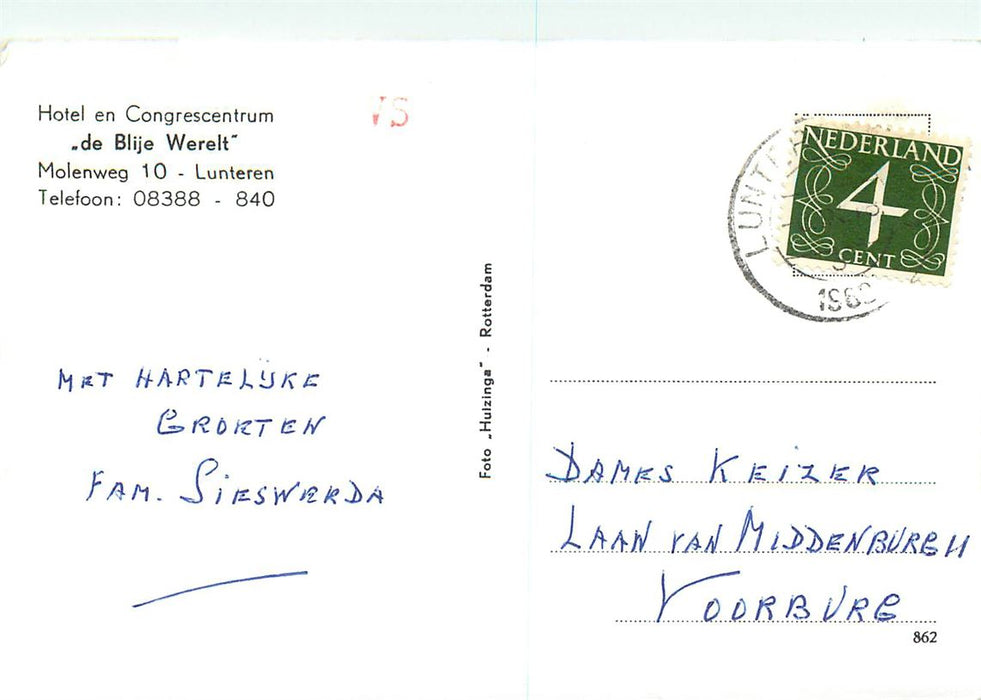 Hotel en Congrescentrum
„de Blije Werelt"
Molenweg 10 - Lunteren
Telefoon: 08388 - 840
VS
MET HARTELIJKE
GROETEN
FAM. SIESWERDA
Foto „Huizinga" - Rotterdam
NEDERLAND
4
CENT
DAMES KEIZER
LAAN VAN MIDDENBURG 11
VOORBURG
862